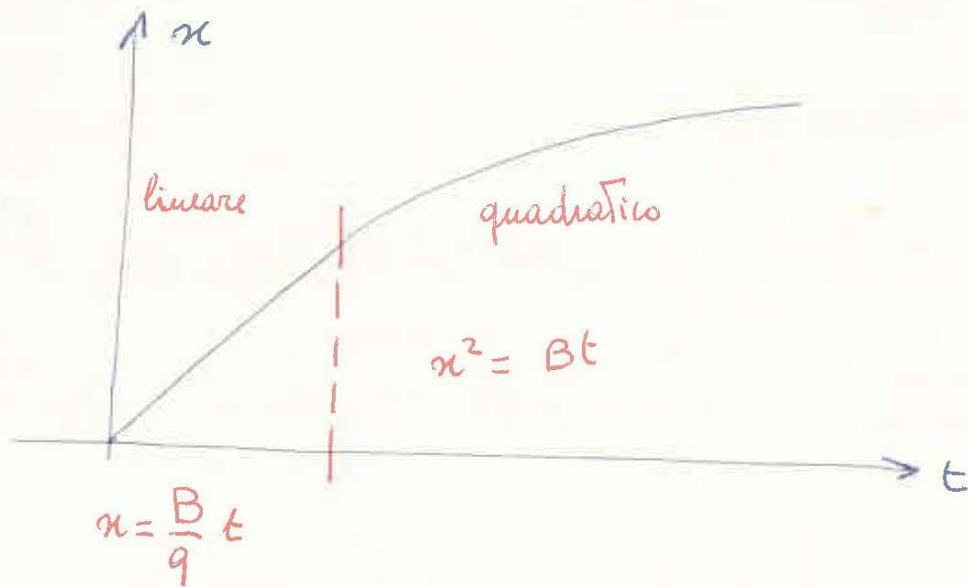 x
lineare
quadratico
x² = Bt
t
x = B/9 t